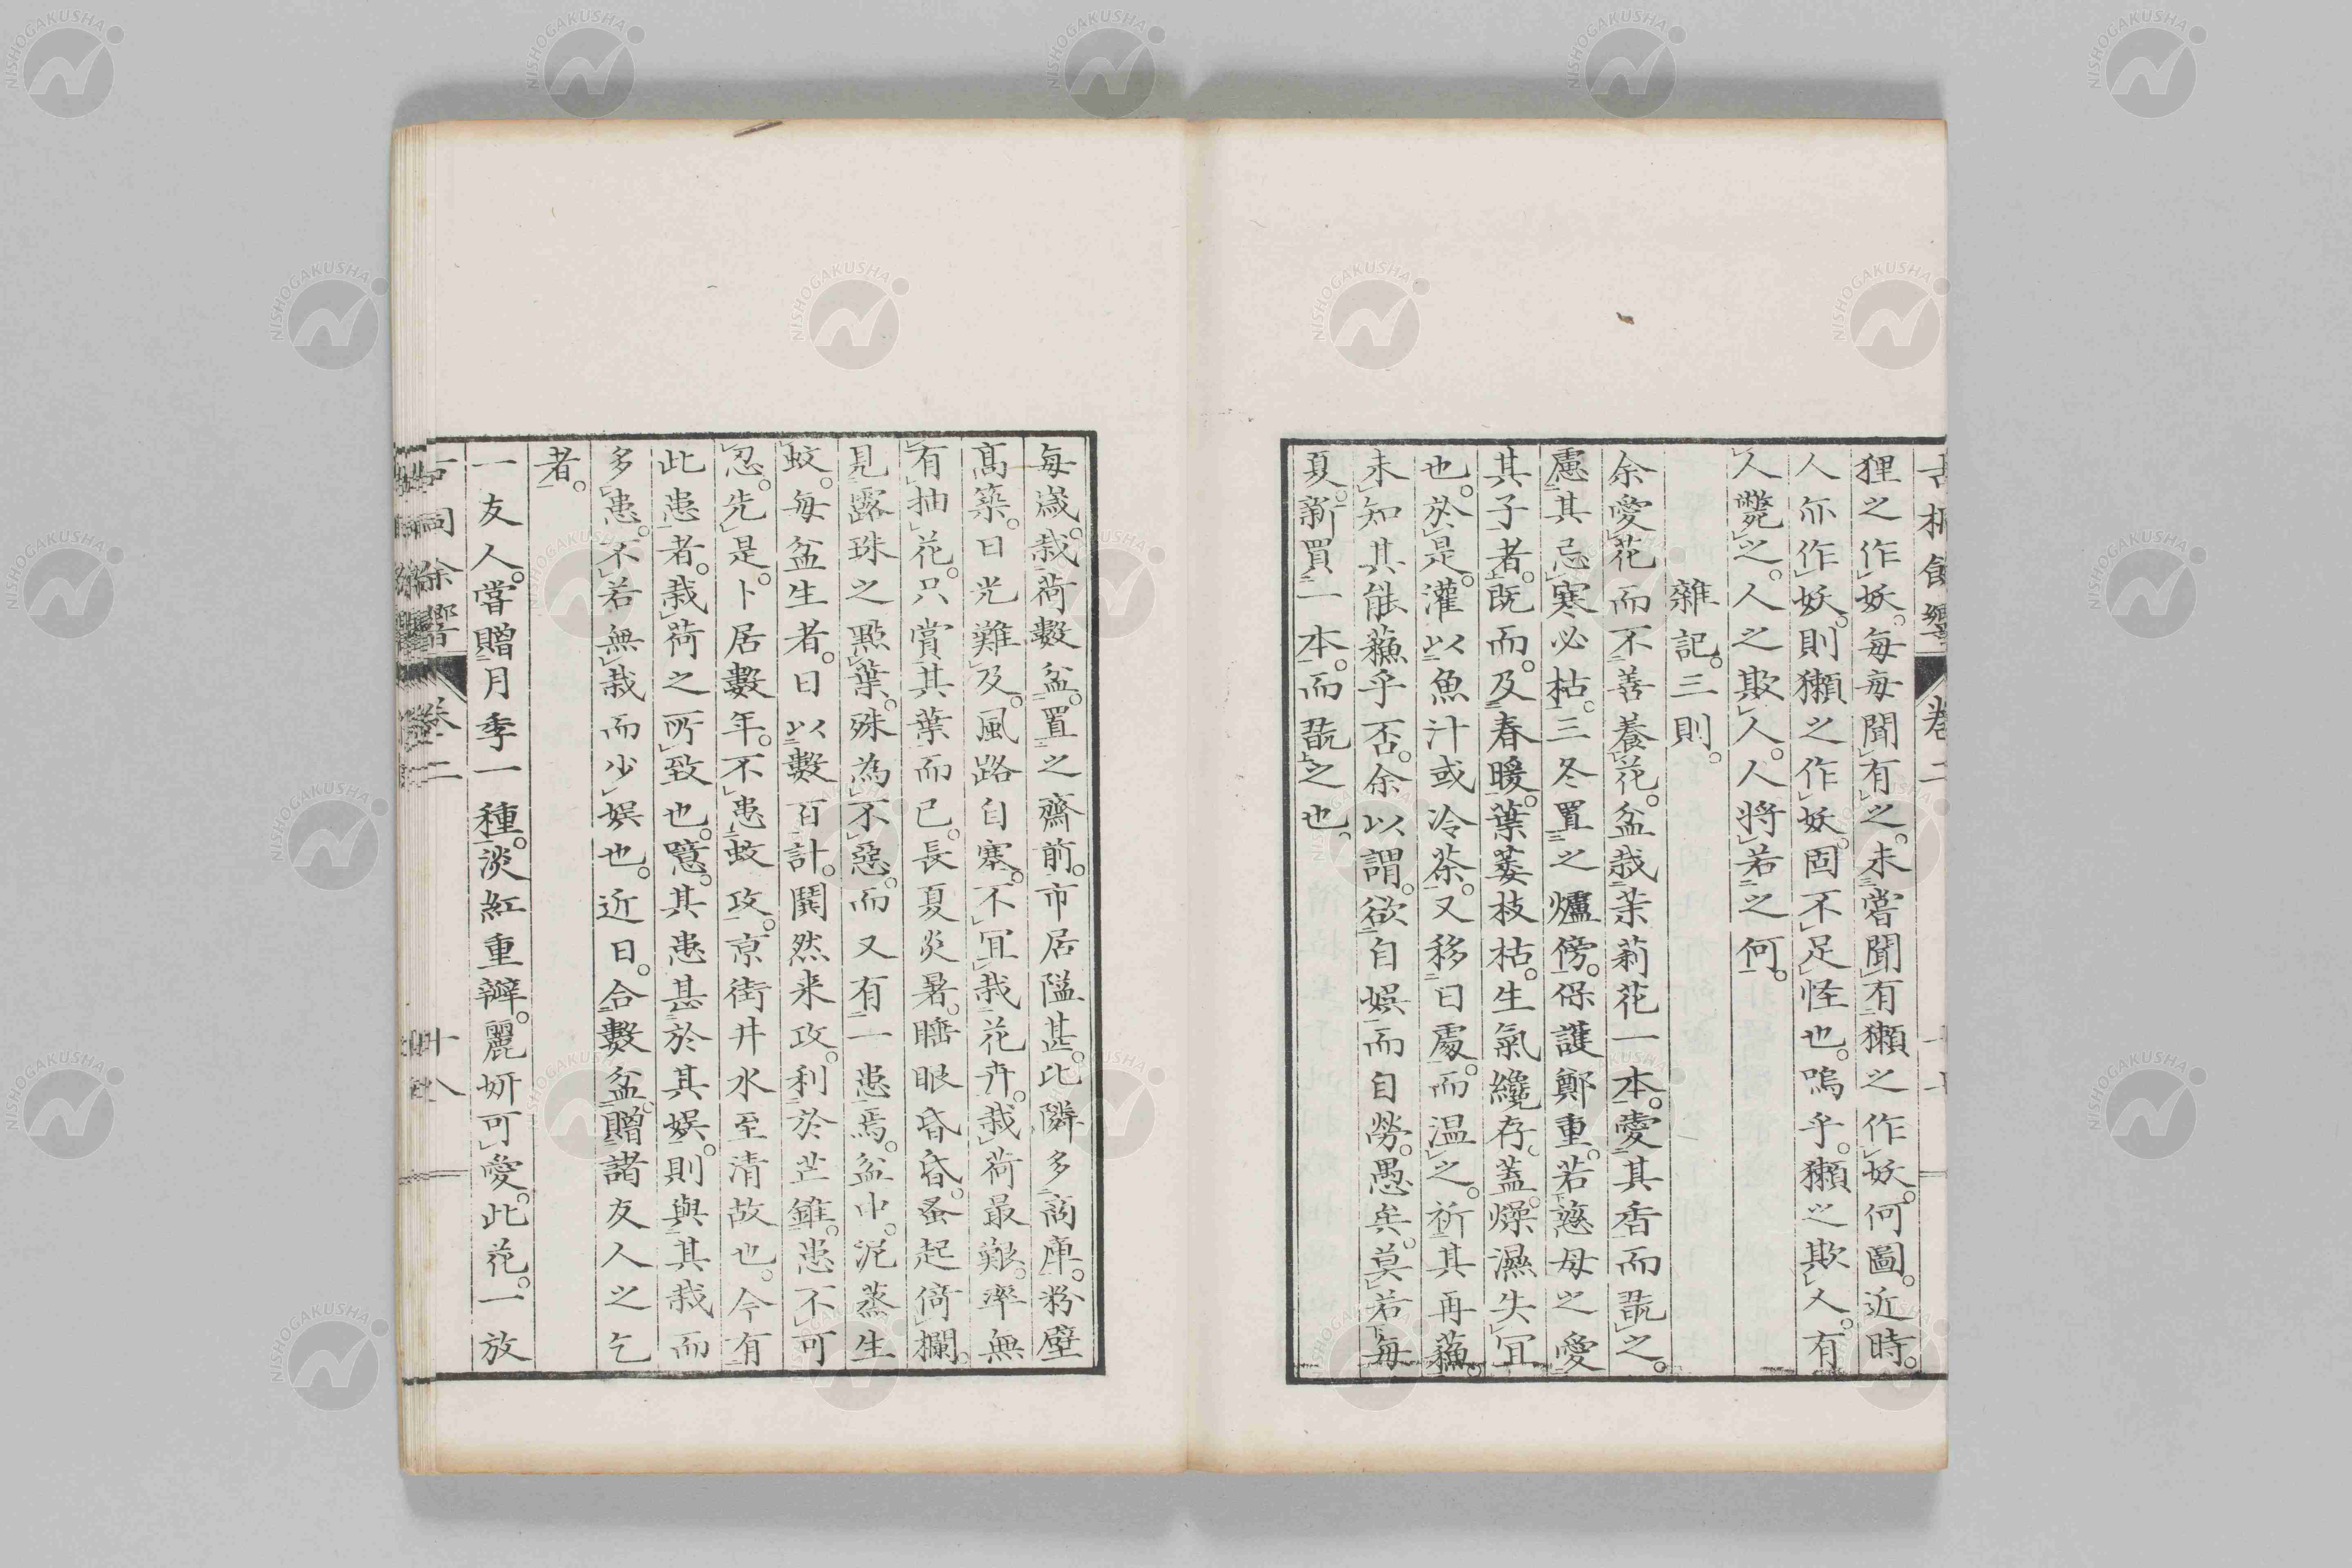 狸之作妖。每每聞有之。未嘗聞有獺之作妖。何圖。近時。
人亦作妖。則獺之作妖。固不足怪也。嗚乎。獺之欺人。有
人斃之。人之欺人。人將若之何。
雜記。三則。
余愛花而不善養花。盆栽茉莉花一本。愛其香而翫之。
慮其忌寒必枯。三冬置之爐傍。保護鄭重。若慈母之愛
其子者。既而。及春暖。葉萎枝枯。生氣纔存。蓋燥濕失宜
也。於是。灌以魚汁或冷茶。又移日處。而溫之。祈其再蘓。
未知其能蘓乎否。余以謂。欲自娯而自勞。愚矣。莫若每
夏。新買一本。而翫之也。
每歲。栽荷數盆。置之齋前。市居隘甚。比隣多商庫。粉壁
高築。日光難及。風路自塞。不宜栽花卉。栽荷最艱。率無
有抽花。只賞其葉而已。長夏炎暑。睡眼昏昏。蚤起倚欄。
見露珠之點葉。殊為不惡。而又有一患焉。盆中。泥蒸生
蚊。每盆生者。日以數百計。鬨然来攻。利於芒錐。患不可
忍。先是。卜居數年。不患蚊攻。京街井水至清故也。今有
此患者。栽荷之所致也。噫。其患甚於其娯。則與其栽而
多患。不若無栽而少娯也。近日。合數盆。贈諸友人之乞
者。
一友人。嘗贈月季一種。淡紅重瓣。麗妍可愛。此花。一放
卷二
十八